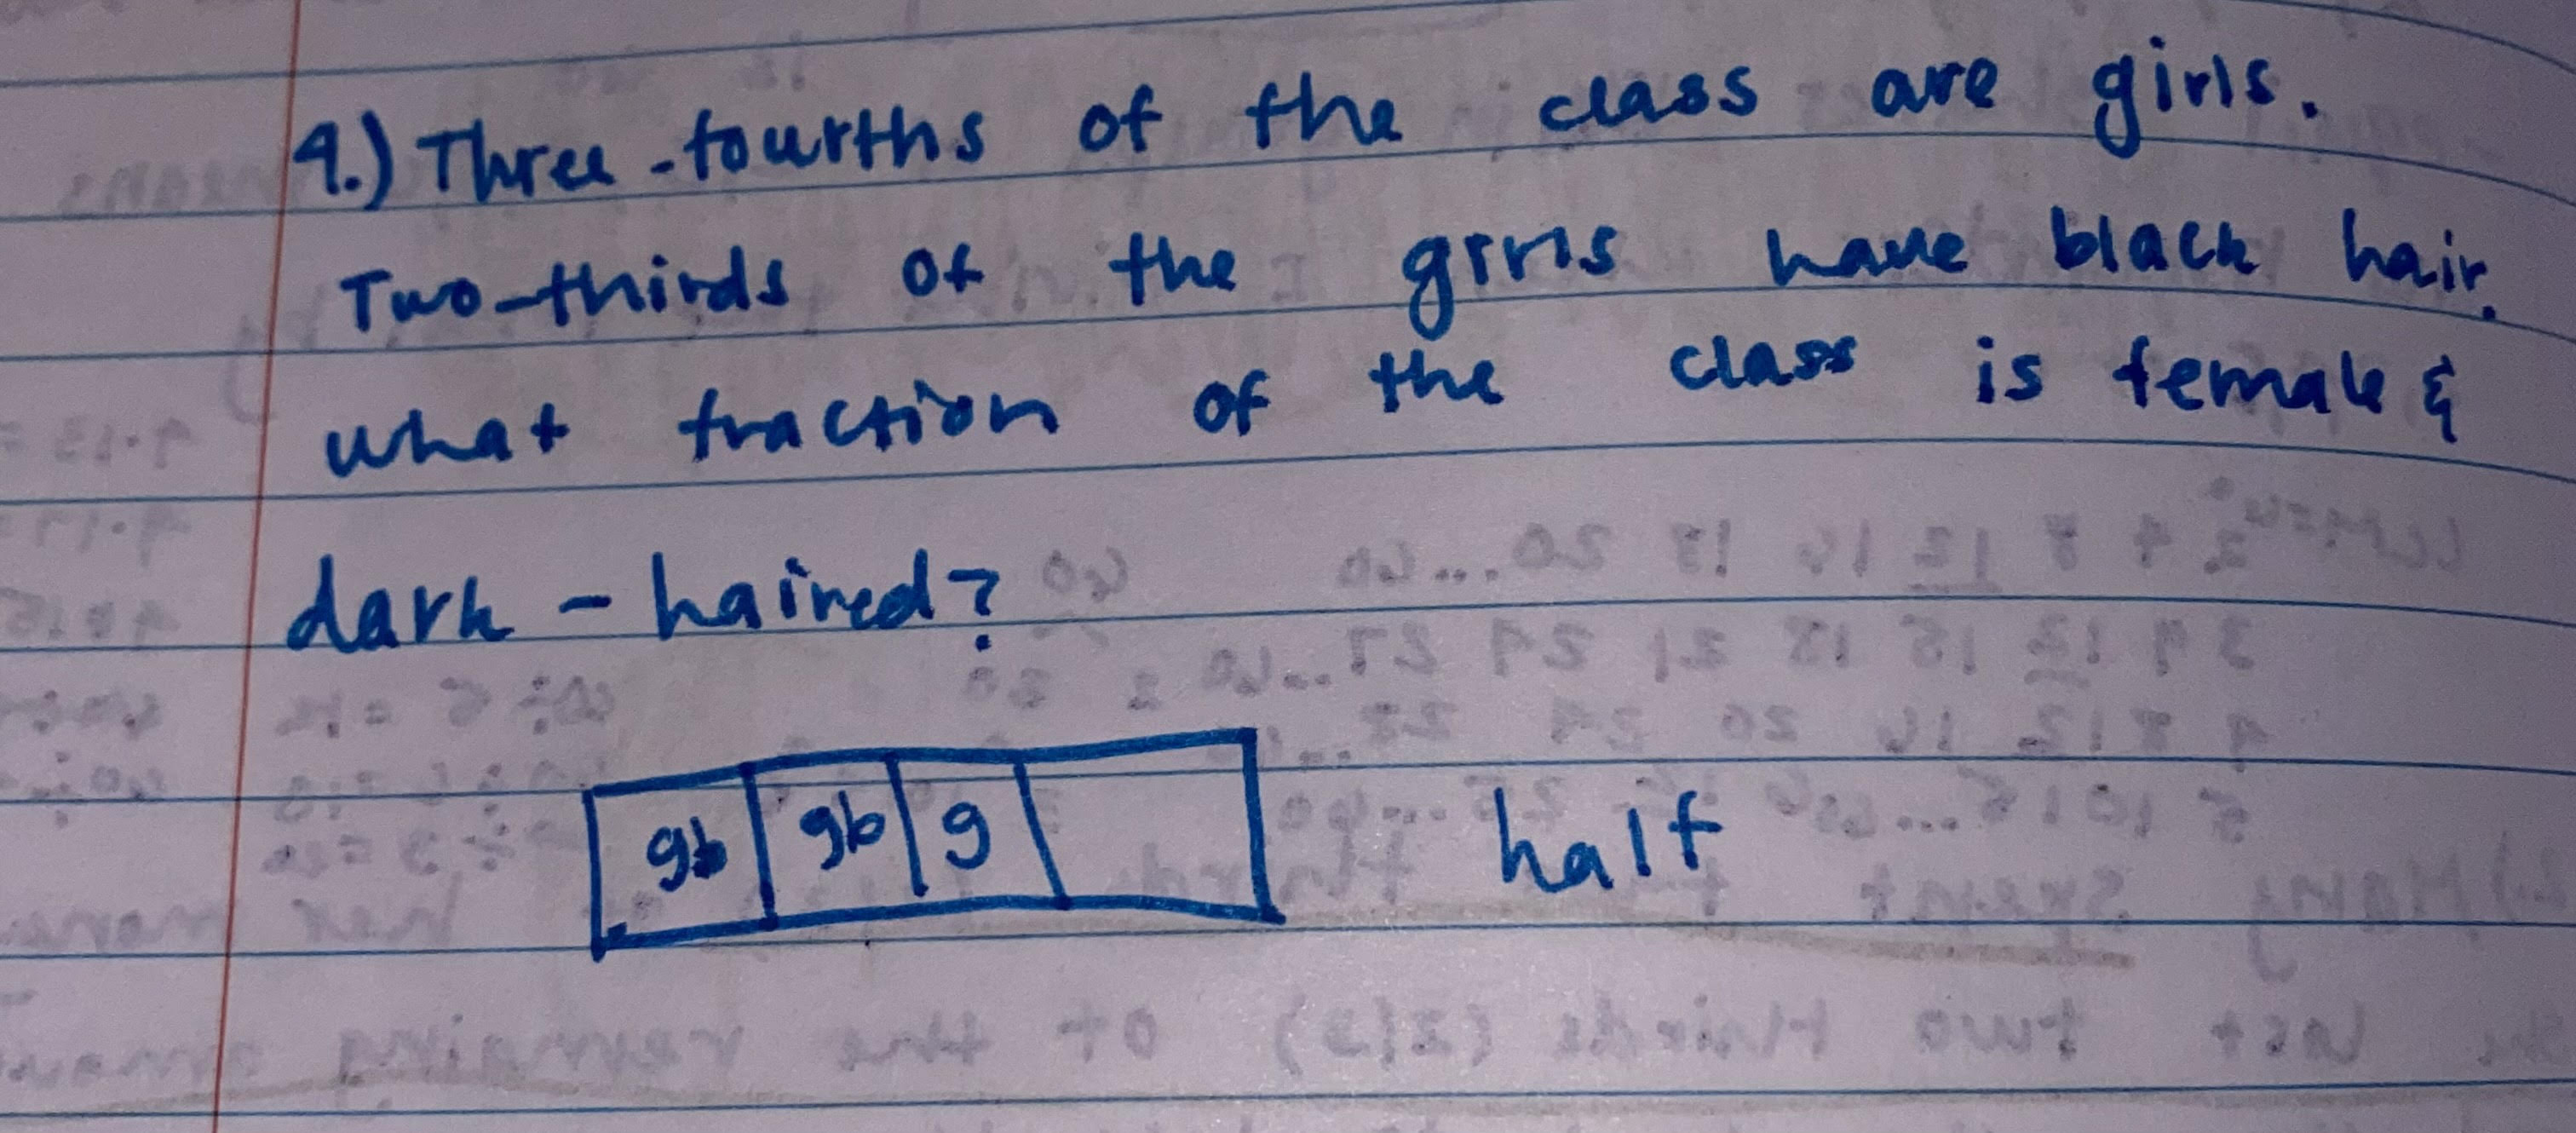 4.) Three-fourths of the class are girls.
Two-thirds of the girls have black hair.
what fraction of the class is female &
dark-haired?
gb gb g half